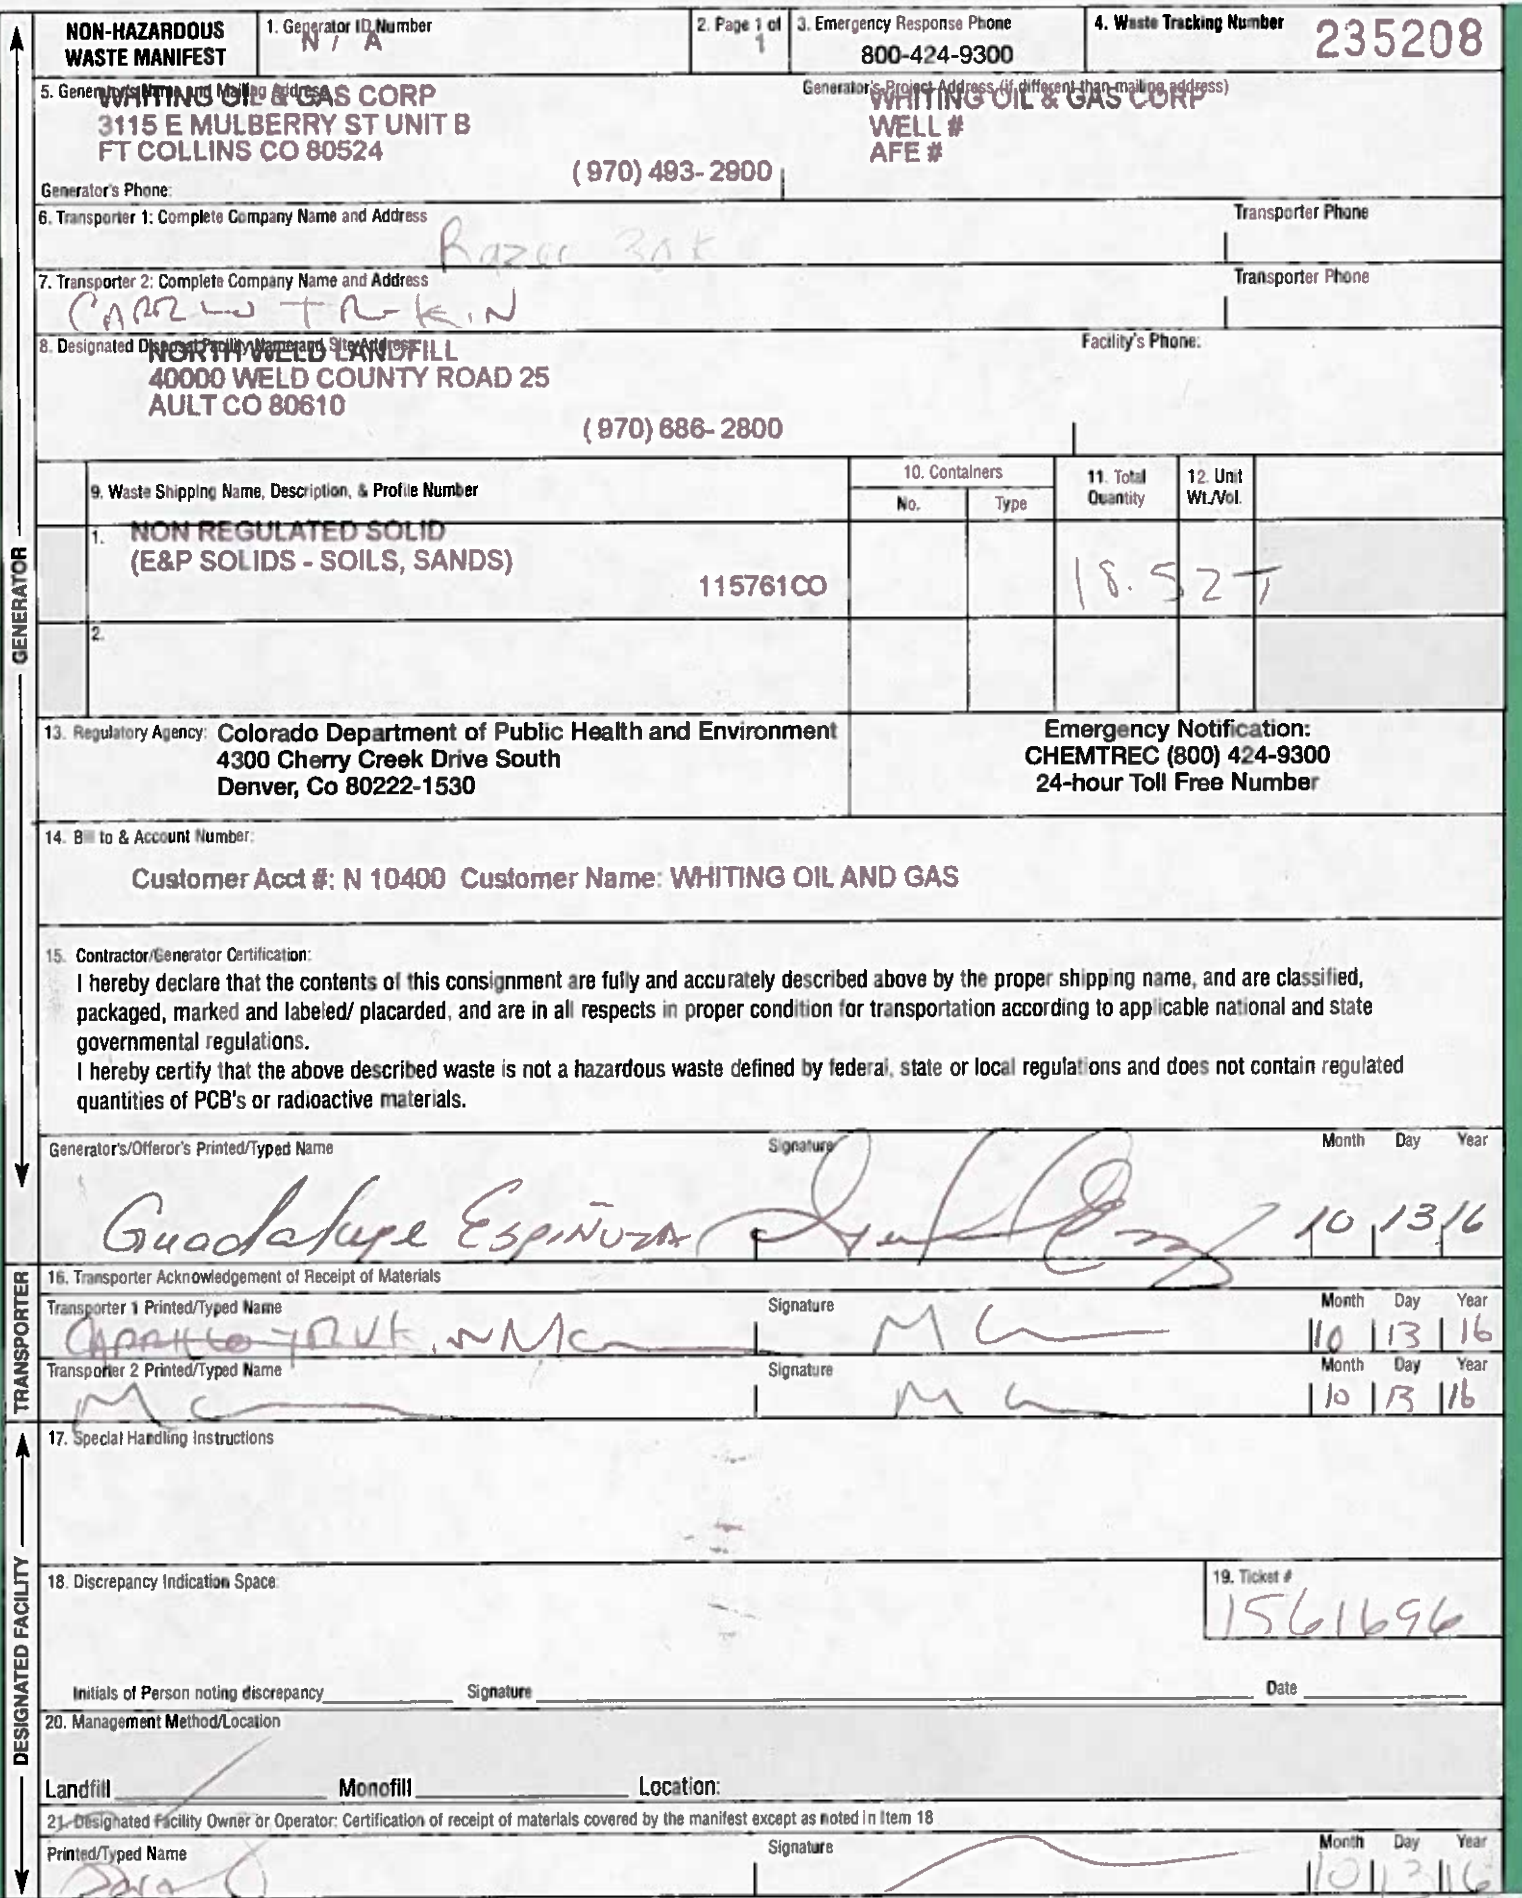 NON-HAZARDOUS
WASTE MANIFEST
1. Generator ID Number
N / A
2. Page 1 of
1
3. Emergency Response Phone
800-424-9300
4. Waste Tracking Number
235208
5. Generator's Name and Mailing Address
WHITING OIL & GAS CORP
3115 E MULBERRY ST UNIT B
FT COLLINS CO 80524
(970) 493-2900
Generator's Phone:
Generator's Project Address (if different than mailing address)
WHITING OIL & GAS CORP
WELL #
AFE #
6. Transporter 1: Complete Company Name and Address
Transporter Phone
Razor
7. Transporter 2: Complete Company Name and Address
Transporter Phone
8. Designated Disposal Facility Name and Site Address:
Facility's Phone:
NORTH WELD LANDFILL
40000 WELD COUNTY ROAD 25
AULT CO 80610
(970) 686-2800
9. Waste Shipping Name, Description, & Profile Number
10. Containers
No.
Type
11. Total
Quantity
12. Unit
Wt./Vol.
1. NON REGULATED SOLID
(E&P SOLIDS - SOILS, SANDS)
115761CO
18.52 T
2.
13. Regulatory Agency: Colorado Department of Public Health and Environment
4300 Cherry Creek Drive South
Denver, Co 80222-1530
Emergency Notification:
CHEMTREC (800) 424-9300
24-hour Toll Free Number
14. Bill to & Account Number:
Customer Acct #: N 10400 Customer Name: WHITING OIL AND GAS
15. Contractor/Generator Certification:
I hereby declare that the contents of this consignment are fully and accurately described above by the proper shipping name, and are classified,
packaged, marked and labeled/ placarded, and are in all respects in proper condition for transportation according to applicable national and state
governmental regulations.
I hereby certify that the above described waste is not a hazardous waste defined by federal, state or local regulations and does not contain regulated
quantities of PCB's or radioactive materials.
Generator's/Offeror's Printed/Typed Name
Signature
Month Day Year
Guadalupe ESPIÑUZA
10 13 16
16. Transporter Acknowledgement of Receipt of Materials
Transporter 1 Printed/Typed Name
Signature
Month Day Year
10 13 16
Transporter 2 Printed/Typed Name
Signature
Month Day Year
10 13 16
17. Special Handling Instructions
18. Discrepancy Indication Space
19. Ticket #
1561696
Initials of Person noting discrepancy
Signature
Date
20. Management Method/Location
Landfill
Monofill
Location:
21. Designated Facility Owner or Operator: Certification of receipt of materials covered by the manifest except as noted in Item 18
Printed/Typed Name
Signature
Month Day Year
10 13 16
GENERATOR
TRANSPORTER
DESIGNATED FACILITY